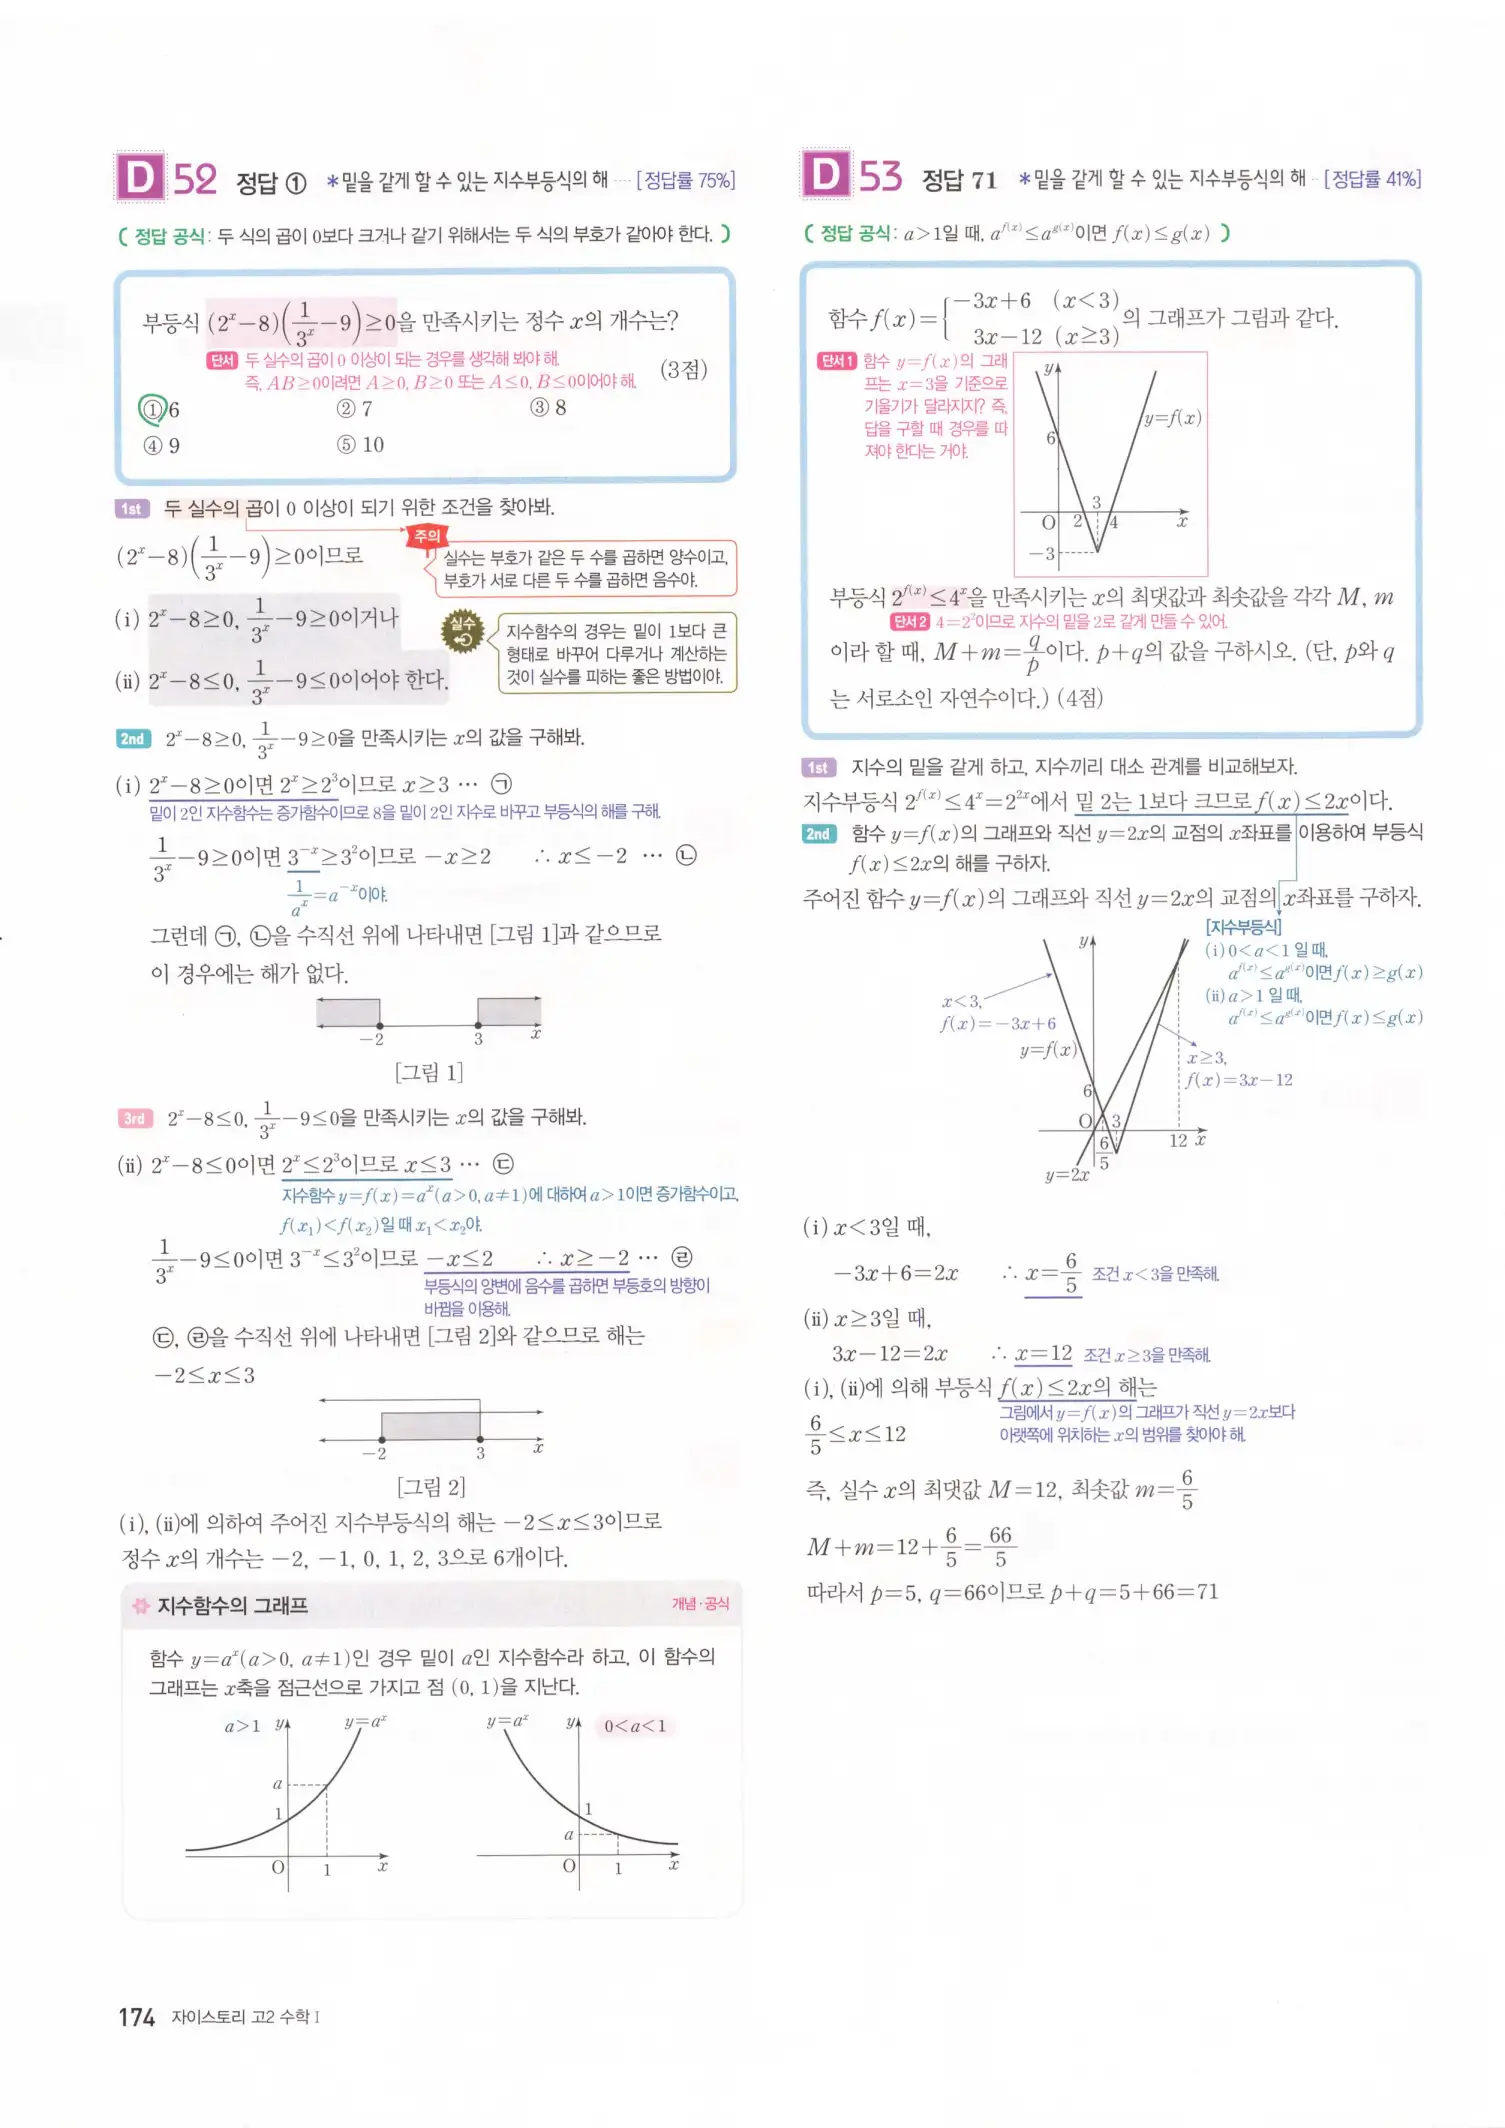 D 52 정답 ① *밑을 같게 할 수 있는 지수부등식의 해 ···· [정답률 75%]
( 정답 공식: 두 식의 곱이 0보다 크거나 같기 위해서는 두 식의 부호가 같아야 한다. )
부등식 (2^x-8)(1/3^x-9)≥0을 만족시키는 정수 x의 개수는?
단서 두 실수의 곱이 0 이상이 되는 경우를 생각해 봐야 해.
즉, AB≥0이려면 A≥0, B≥0 또는 A≤0, B≤0이어야 해.
(3점)
① 6 ② 7 ③ 8
④ 9 ⑤ 10
1st 두 실수의 곱이 0 이상이 되기 위한 조건을 찾아봐.
(2^x-8)(1/3^x-9)≥0이므로
주의
실수는 부호가 같은 두 수를 곱하면 양수이고,
부호가 서로 다른 두 수를 곱하면 음수야.
(i) 2^x-8≥0, 1/3^x-9≥0이거나
(ii) 2^x-8≤0, 1/3^x-9≤0이어야 한다.
실수
지수함수의 경우는 밑이 1보다 큰
형태로 바꾸어 다루거나 계산하는
것이 실수를 피하는 좋은 방법이야.
2nd 2^x-8≥0, 1/3^x-9≥0을 만족시키는 x의 값을 구해봐.
(i) 2^x-8≥0이면 2^x≥2^3이므로 x≥3 ··· ㉠
밑이 2인 지수함수는 증가함수이므로 8을 밑이 2인 지수로 바꾸고 부등식의 해를 구해.
1/3^x-9≥0이면 3^-x≥3^2이므로 -x≥2 ∴ x≤-2 ··· ㉡
1/a^x=a^-x이야.
그런데 ㉠, ㉡을 수직선 위에 나타내면 [그림 1]과 같으므로
이 경우에는 해가 없다.
-2 3 x
[그림 1]
3rd 2^x-8≤0, 1/3^x-9≤0을 만족시키는 x의 값을 구해봐.
(ii) 2^x-8≤0이면 2^x≤2^3이므로 x≤3 ··· ㉢
지수함수 y=f(x)=a^x(a>0, a≠1)에 대하여 a>1이면 증가함수이고,
f(x₁)<f(x₂)일 때 x₁<x₂야.
1/3^x-9≤0이면 3^-x≤3^2이므로 -x≤2 ∴ x≥-2 ··· ㉣
부등식의 양변에 음수를 곱하면 부등호의 방향이
바뀜을 이용해.
㉢, ㉣을 수직선 위에 나타내면 [그림 2]와 같으므로 해는
-2≤x≤3
-2 3 x
[그림 2]
(i), (ii)에 의하여 주어진 지수부등식의 해는 -2≤x≤3이므로
정수 x의 개수는 -2, -1, 0, 1, 2, 3으로 6개이다.
지수함수의 그래프 개념·공식
함수 y=a^x(a>0, a≠1)인 경우 밑이 a인 지수함수라 하고, 이 함수의
그래프는 x축을 점근선으로 가지고 점 (0, 1)을 지난다.
a>1 y y=a^x
a
1
O 1 x
y=a^x y 0<a<1
1
a
O 1 x
174 자이스토리 고2 수학 I
D 53 정답 71 *밑을 같게 할 수 있는 지수부등식의 해 ·· [정답률 41%]
( 정답 공식: a>1일 때, a^f(x)≤a^g(x)이면 f(x)≤g(x) )
함수 f(x)={ -3x+6 (x<3)
3x-12 (x≥3) 의 그래프가 그림과 같다.
단서1 함수 y=f(x)의 그래
프는 x=3을 기준으로
기울기가 달라지지? 즉,
답을 구할 때 경우를 따
져야 한다는 거야.
y
y=f(x)
6
3
O 2 4 x
-3
부등식 2^f(x)≤4^x을 만족시키는 x의 최댓값과 최솟값을 각각 M, m
단서2 4=2^2이므로 지수의 밑을 2로 같게 만들 수 있어.
이라 할 때, M+m=q/p이다. p+q의 값을 구하시오. (단, p와 q
는 서로소인 자연수이다.) (4점)
1st 지수의 밑을 같게 하고, 지수끼리 대소 관계를 비교해보자.
지수부등식 2^f(x)≤4^x=2^2x에서 밑 2는 1보다 크므로 f(x)≤2x이다.
2nd 함수 y=f(x)의 그래프와 직선 y=2x의 교점의 x좌표를 이용하여 부등식
f(x)≤2x의 해를 구하자.
주어진 함수 y=f(x)의 그래프와 직선 y=2x의 교점의 x좌표를 구하자.
[지수부등식]
(i) 0<a<1일 때,
a^f(x)≤a^g(x)이면 f(x)≥g(x)
(ii) a>1일 때,
a^f(x)≤a^g(x)이면 f(x)≤g(x)
y
x<3,
f(x)=-3x+6
y=f(x)
x≥3,
f(x)=3x-12
6
O 3
6/5 12 x
y=2x
(i) x<3일 때,
-3x+6=2x ∴ x=6/5 조건 x<3을 만족해.
(ii) x≥3일 때,
3x-12=2x ∴ x=12 조건 x≥3을 만족해.
(i), (ii)에 의해 부등식 f(x)≤2x의 해는
그림에서 y=f(x)의 그래프가 직선 y=2x보다
아랫쪽에 위치하는 x의 범위를 찾아야 해.
6/5≤x≤12
즉, 실수 x의 최댓값 M=12, 최솟값 m=6/5
M+m=12+6/5=66/5
따라서 p=5, q=66이므로 p+q=5+66=71